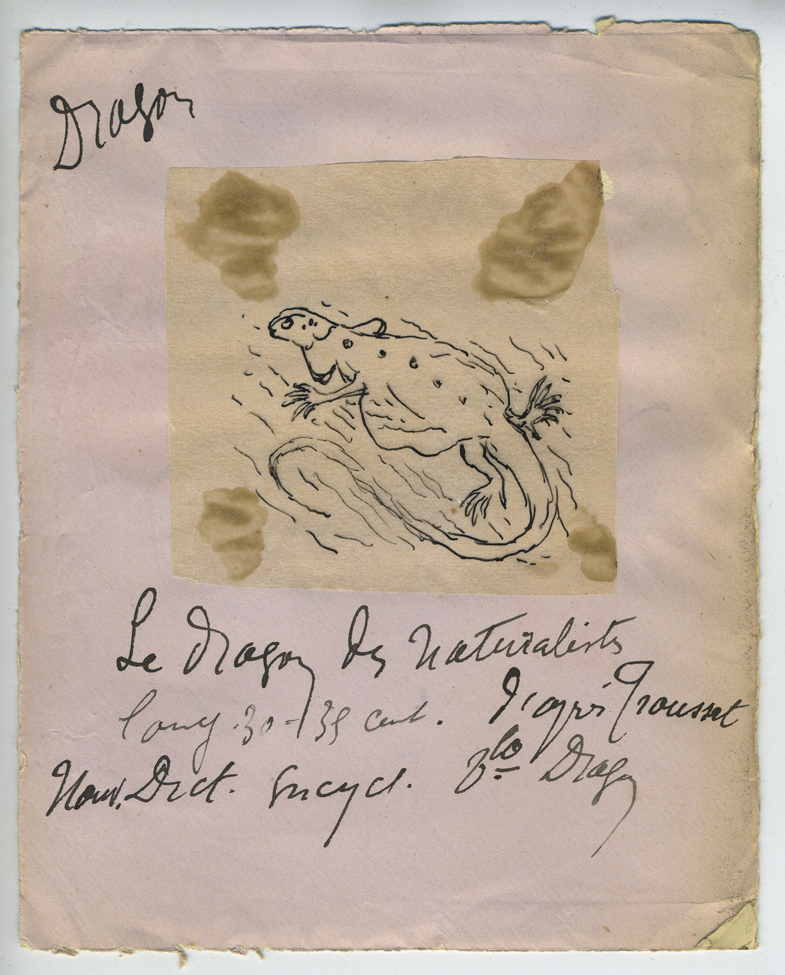 Dragon
Le dragon des naturalists
long 30-35 cent. d'après Trousset
Nouv. Dict. Encycl. Vo Dragon